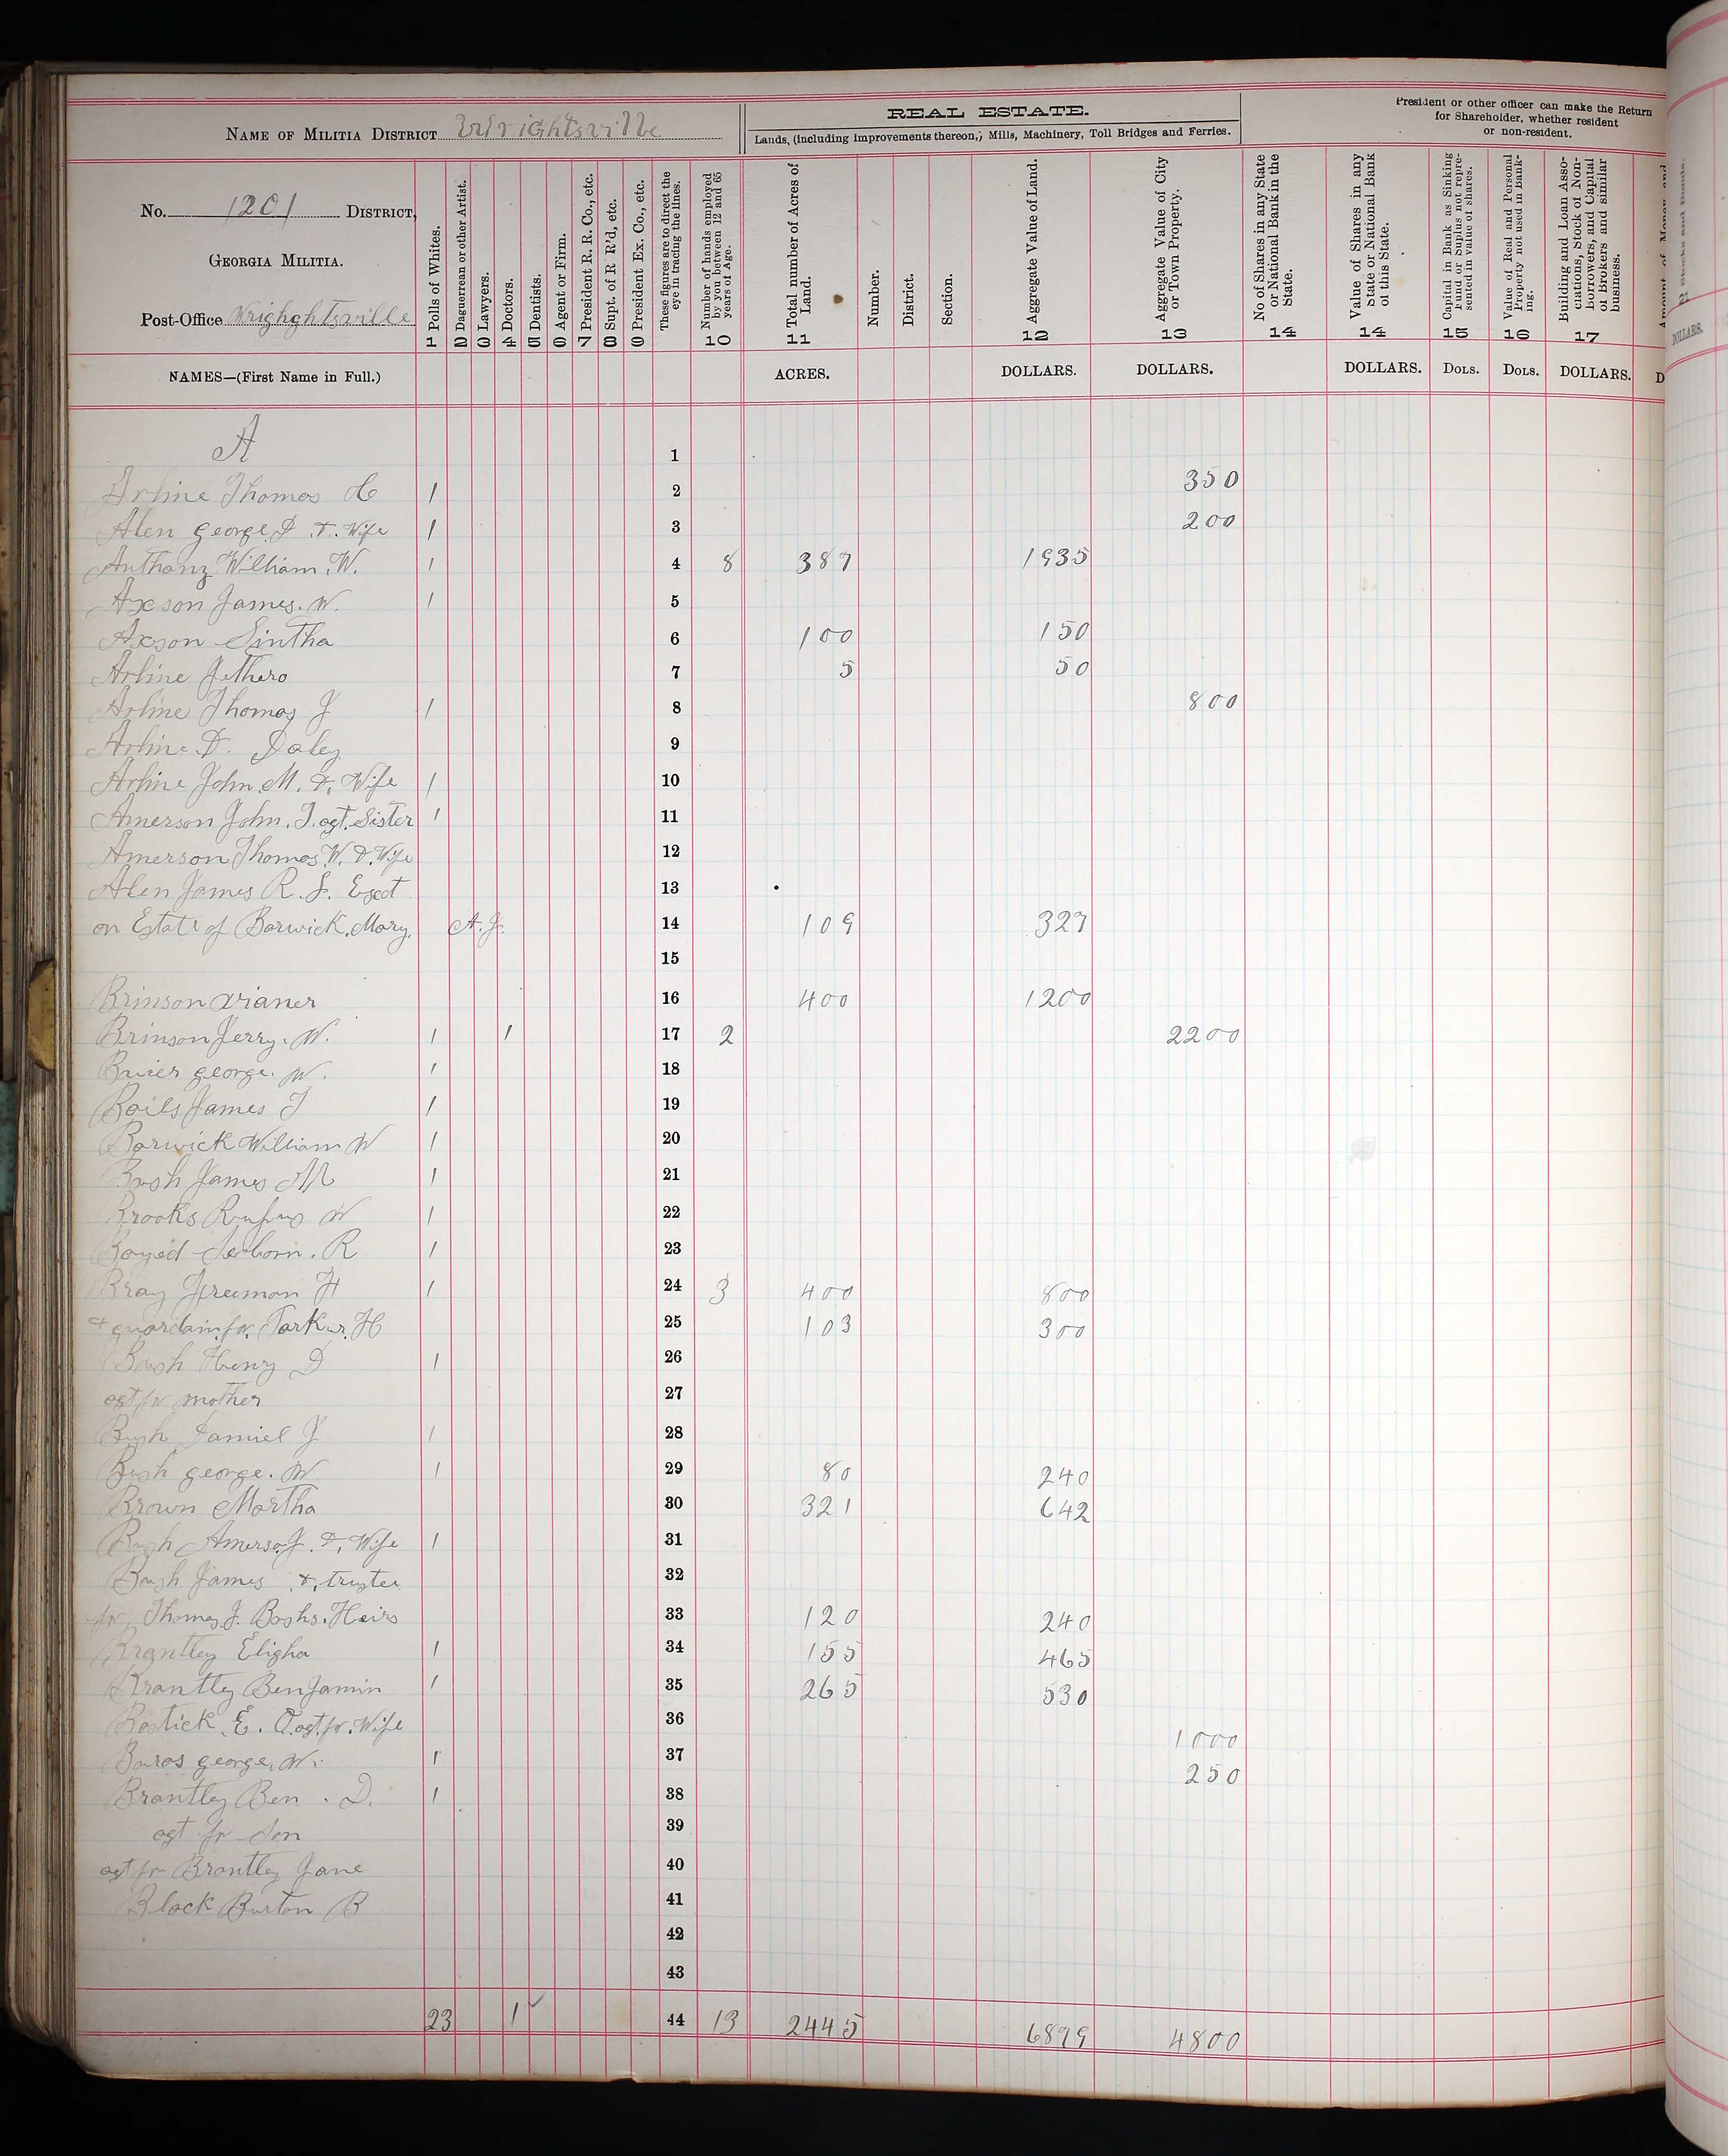 NAME OF MILITIA DISTRICT Wrightsville
REAL ESTATE.
Lands, (including improvements thereon,) Mills, Machinery, Toll Bridges and Ferries.
President or other officer can make the Return
for Shareholder, whether resident
or non-resident.
No. 1201 DISTRICT,
GEORGIA MILITIA.
Post-Office Wrighghtsville
1 Polls of Whites.
2 Daguerrean or other Artist.
3 Lawyers.
4 Doctors.
5 Dentists.
6 Agent or Firm.
7 President R. R. Co., etc.
8 Supt. of R R'd, etc.
9 President Ex. Co., etc.
These figures are to direct the eye in tracing the lines.
Number of hands employed by you between 12 and 65 years of Age. 10
Total number of Acres of Land. 11
Number.
District.
Section.
Aggregate Value of Land. 12
Aggregate Value of City or Town Property. 13
No of Shares in any State or National Bank in the State. 14
Value of Shares in any State or National Bank of this State. 14
Capital in Bank as Sinking Fund or Suplus not represented in value of shares. 15
Value of Real and Personal Property not used in Banking. 16
Building and Loan Associations, Stock of Non-Borrowers, and Capital of Brokers and similar business. 17
NAMES—(First Name in Full.) ACRES. DOLLARS. DOLLARS. DOLLARS. DOLS. DOLS. DOLLARS. D
A 1
Arline Thomas C 1 2 350
Alen george D &. Wife 1 3 200
Anthany William. W. 1 4 8 387 1935
Axson James. W. 1 5
Axson Sintha 6 100 150
Arline Jethero 7 5 50
Arline Thomas J 1 8 800
Arline. D. Daley 9
Arline John. M. &. Wife 1 10
Amerson John. J. agt. Sister 1 11
Amerson Thomas W. &. Wife 12
Alen James R. S. Exect 13
on Estate of Barwick. Mary. A. J. 14 109 327
15
Brinson Vianer 16 400 1200
Brinson Jerry. W. 1 1 17 2 2200
george. W. 1 18
Bails James T 1 19
Barwick William W 1 20
Bush James M 1 21
Brooks Rufus W 1 22
Boyed R 1 23
Bray Freeman H 1 24 3 400 800
+ guardain for. H 25 103 300
Bush Henry D 1 26
agt for mother 27
Bush Daniel J 1 28
Bush george. W 1 29 80 240
Brown Martha 30 321 642
Bush J. &. Wife 1 31
Bush James &. truster 32
for Thomas J. Bushs. Heirs 33 120 240
Brantley Eligha 1 34 155 465
Brantley Benjamin 1 35 265 530
Bostick E. O. agt. for. Wife 36 1000
george. W. 1 37 250
Brantley Ben. D. 1 38
agt for Son 39
agt for Brantley Jane 40
Black Burton B 41
42
43
23 1 44 13 2445 6879 4800